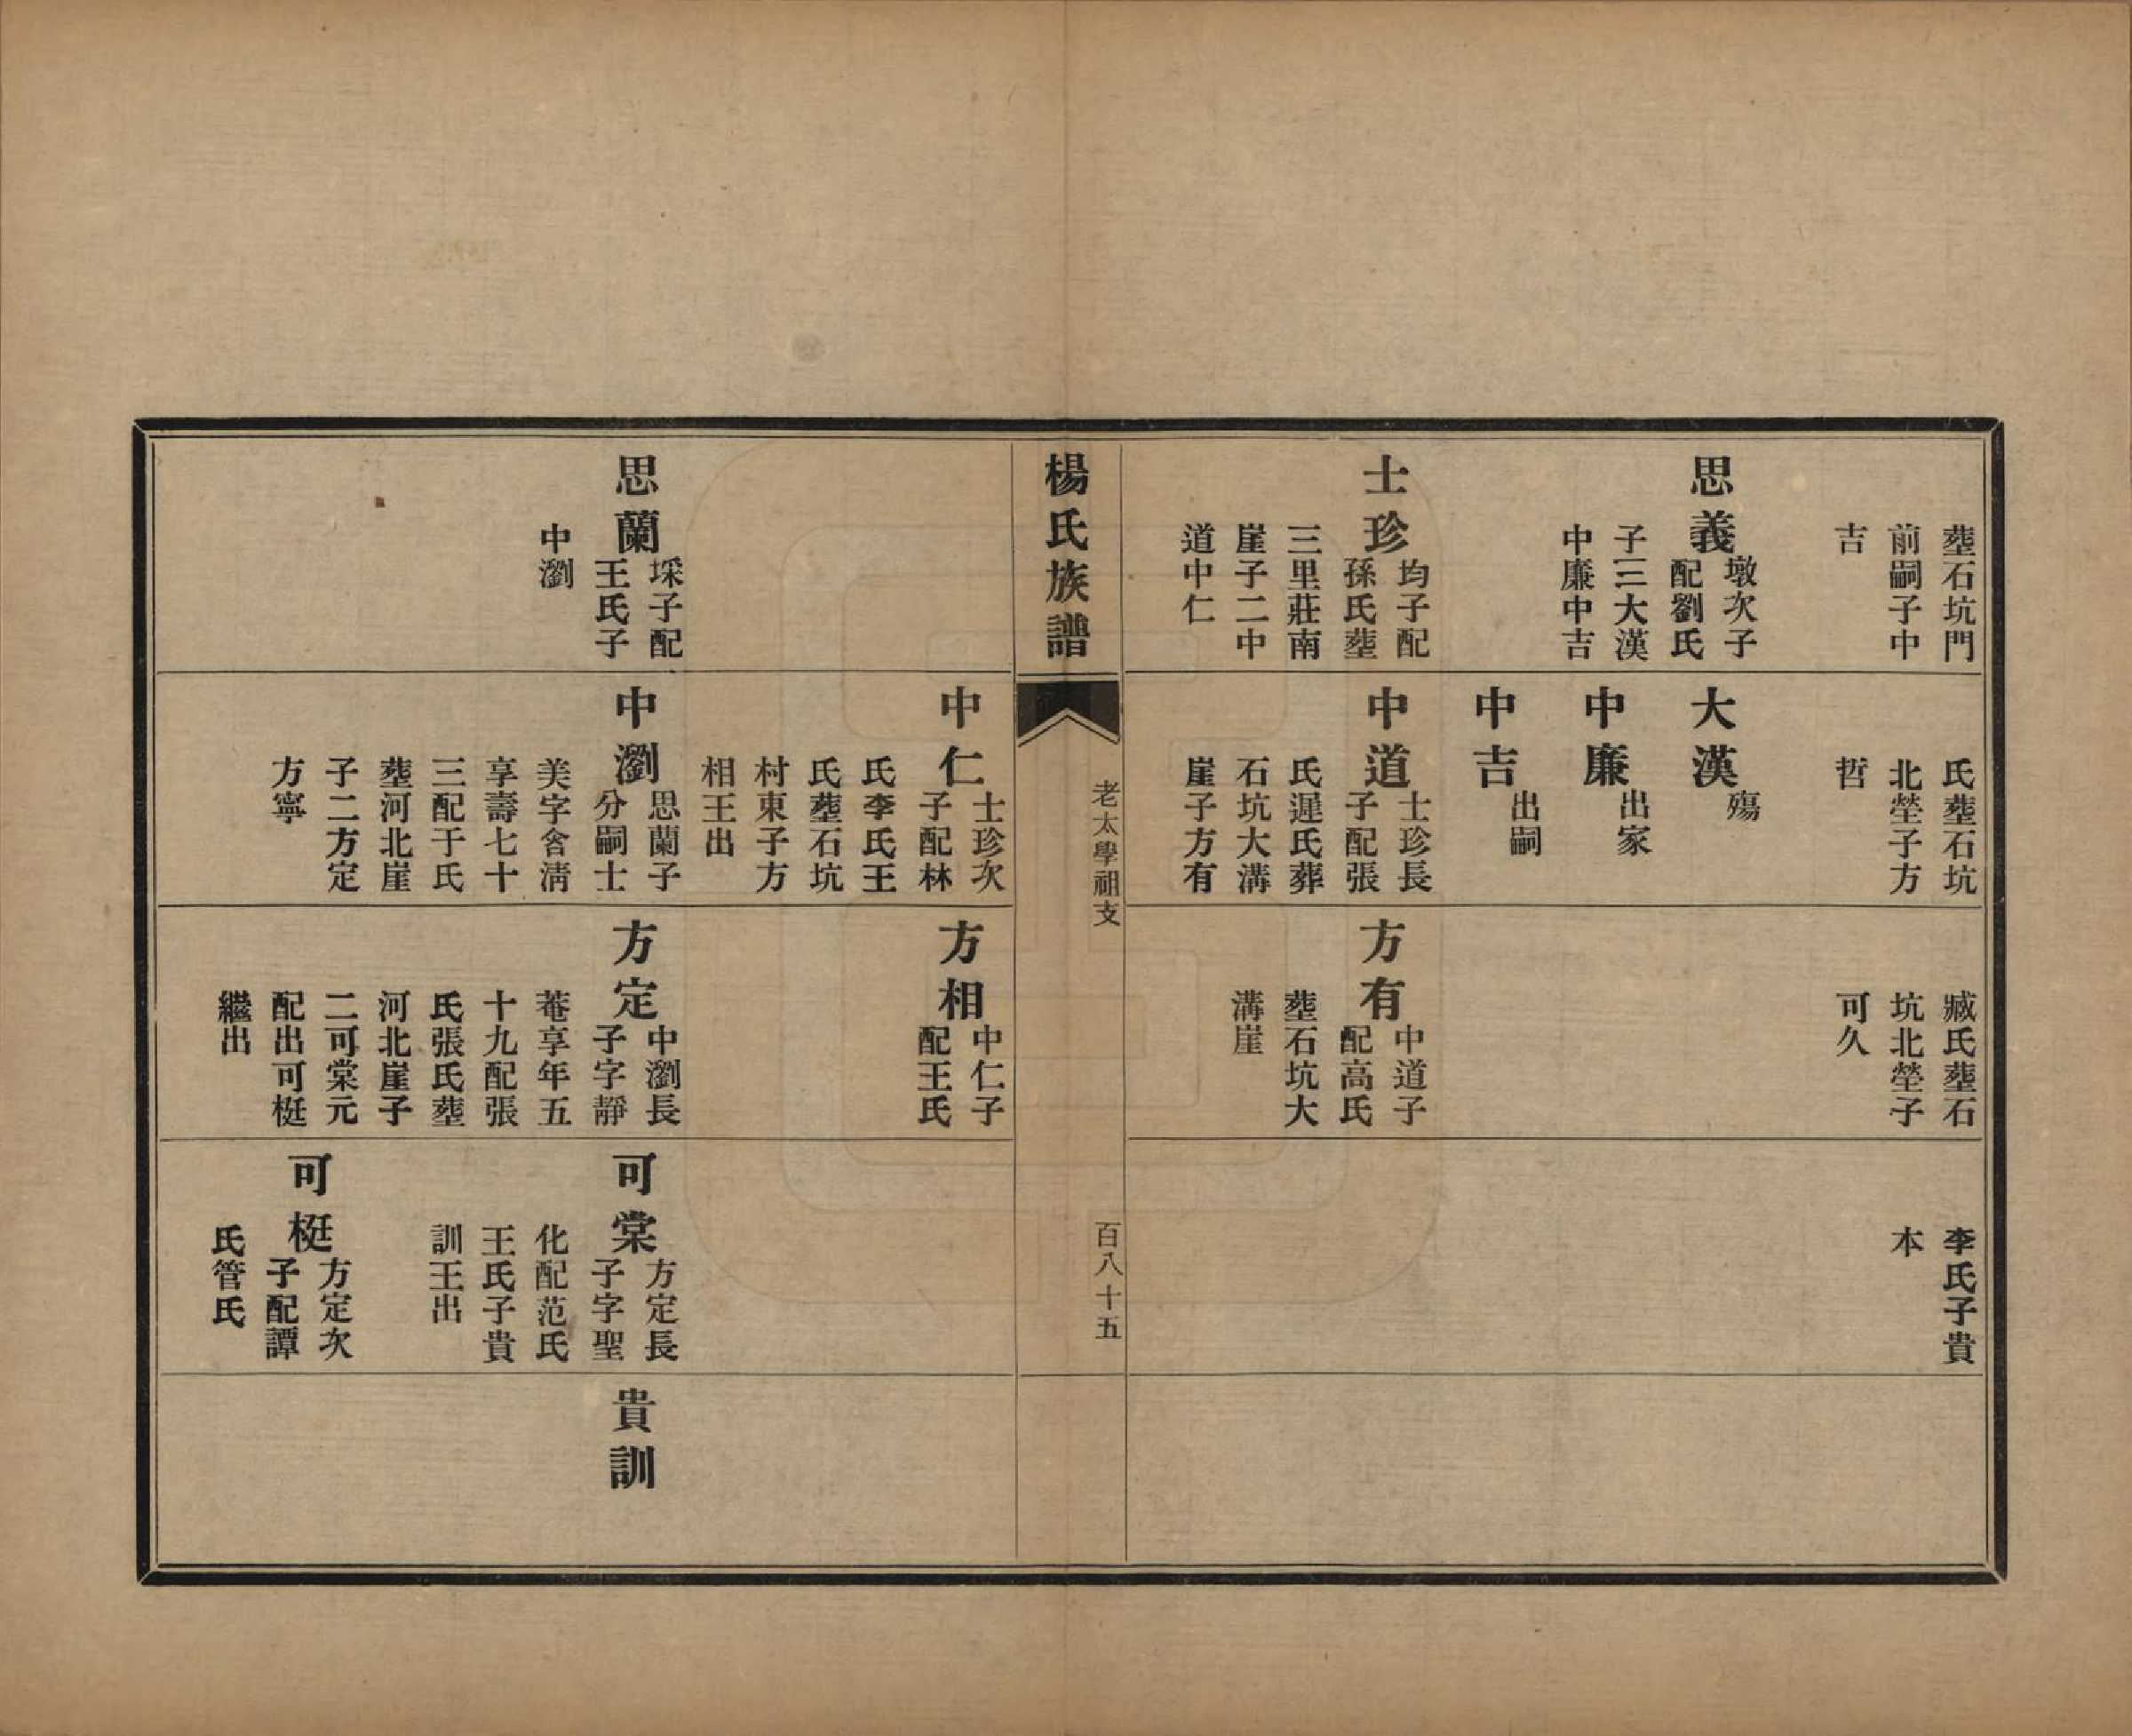 塟石坑門
前嗣子中
吉
思義
墩次子
配劉氏
子三大漢
中廉中吉
士珍
均子配
孫氏塟
三里莊南
崖子二中
道中仁
氏塟石坑
北塋子方
哲
大漢
殤
中廉
出家
中吉
出嗣
中道
士珍長
子配張
氏遲氏葬
石坑大溝
崖子方有
臧氏塟石
坑北塋子
可久
方有
中道子
配高氏
塟石坑大
溝崖
李氏子貴
本
楊氏族譜
老太學祖支
百八十五
思蘭
埰子配
王氏子
中瀏
中仁
士珍次
子配林
氏李氏王
氏塟石坑
村東子方
相王出
中瀏
思蘭子
分嗣士
美字含淸
享壽七十
三配于氏
塟河北崖
子二方定
方寧
方相
中仁子
配王氏
方定
中瀏長
子字靜
菴享年五
十九配張
氏張氏塟
河北崖子
二可棠元
配出可梃
繼出
可棠
方定長
子字聖
化配范氏
王氏子貴
訓王出
可梃
方定次
子配譚
氏管氏
貴訓